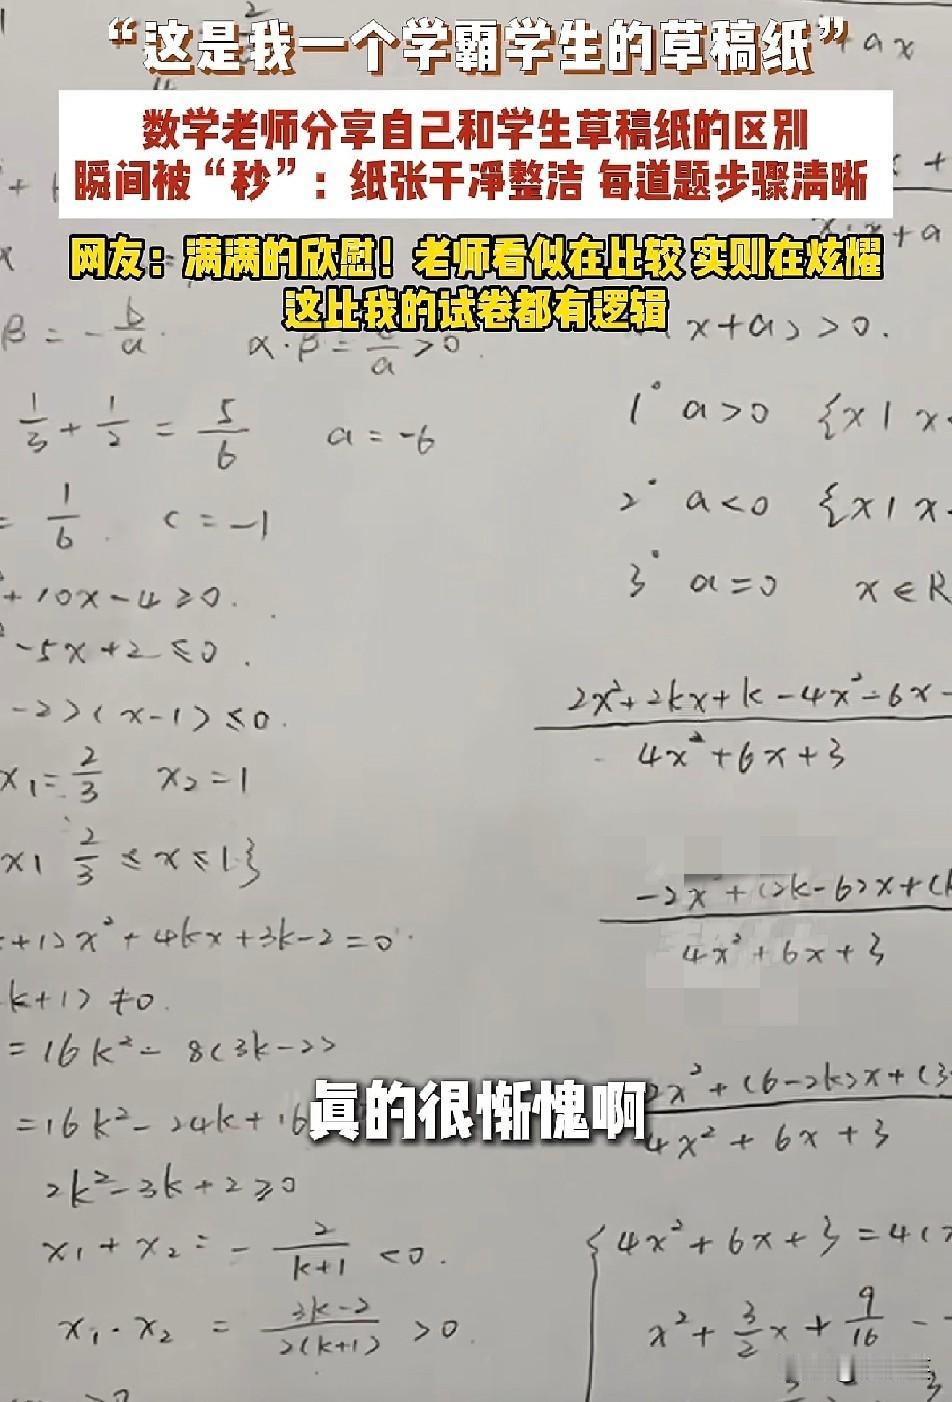 “这是我一个学霸学生的草稿纸”
数学老师分享自己和学生草稿纸的区别
瞬间被“秒”：纸张干净整洁 每道题步骤清晰
网友：满满的欣慰！老师看似在比较 实则在炫耀
这比我的试卷都有逻辑
β = - b/a . α·β = c/a > 0 .
1/3 + 1/2 = 5/6 a = -6
= 1/6 . c = -1
+ 10x - 4 ≥ 0 .
- 5x + 2 ≤ 0 .
-2)(x-1) ≤ 0 .
x₁ = 2/3 x₂ = 1
x | 2/3 ≤ x ≤ 1}
+1)x² + 4kx + 3k - 2 = 0 .
k+1) ≠ 0 .
= 16k² - 8(3k-2)
= 16k² - 24k + 16
2k² - 3k + 2 ≥ 0
x₁ + x₂ = - 2/(k+1) < 0 .
x₁ · x₂ = (3k-2)/2(k+1) > 0 .
+ ax
x + a
x + a) > 0 .
1° a > 0 {x | x
2° a < 0 {x | x
3° a = 0 x ∈ R
2x² + 2kx + k - 4x² - 6x -
4x² + 6x + 3
-2x² + (2k-6)x + (k
4x² + 6x + 3
2x² + (6-2k)x + (3
4x² + 6x + 3
{ 4x² + 6x + 3 = 4(x
x² + 3/2 x + 9/16 -
真的很惭愧啊